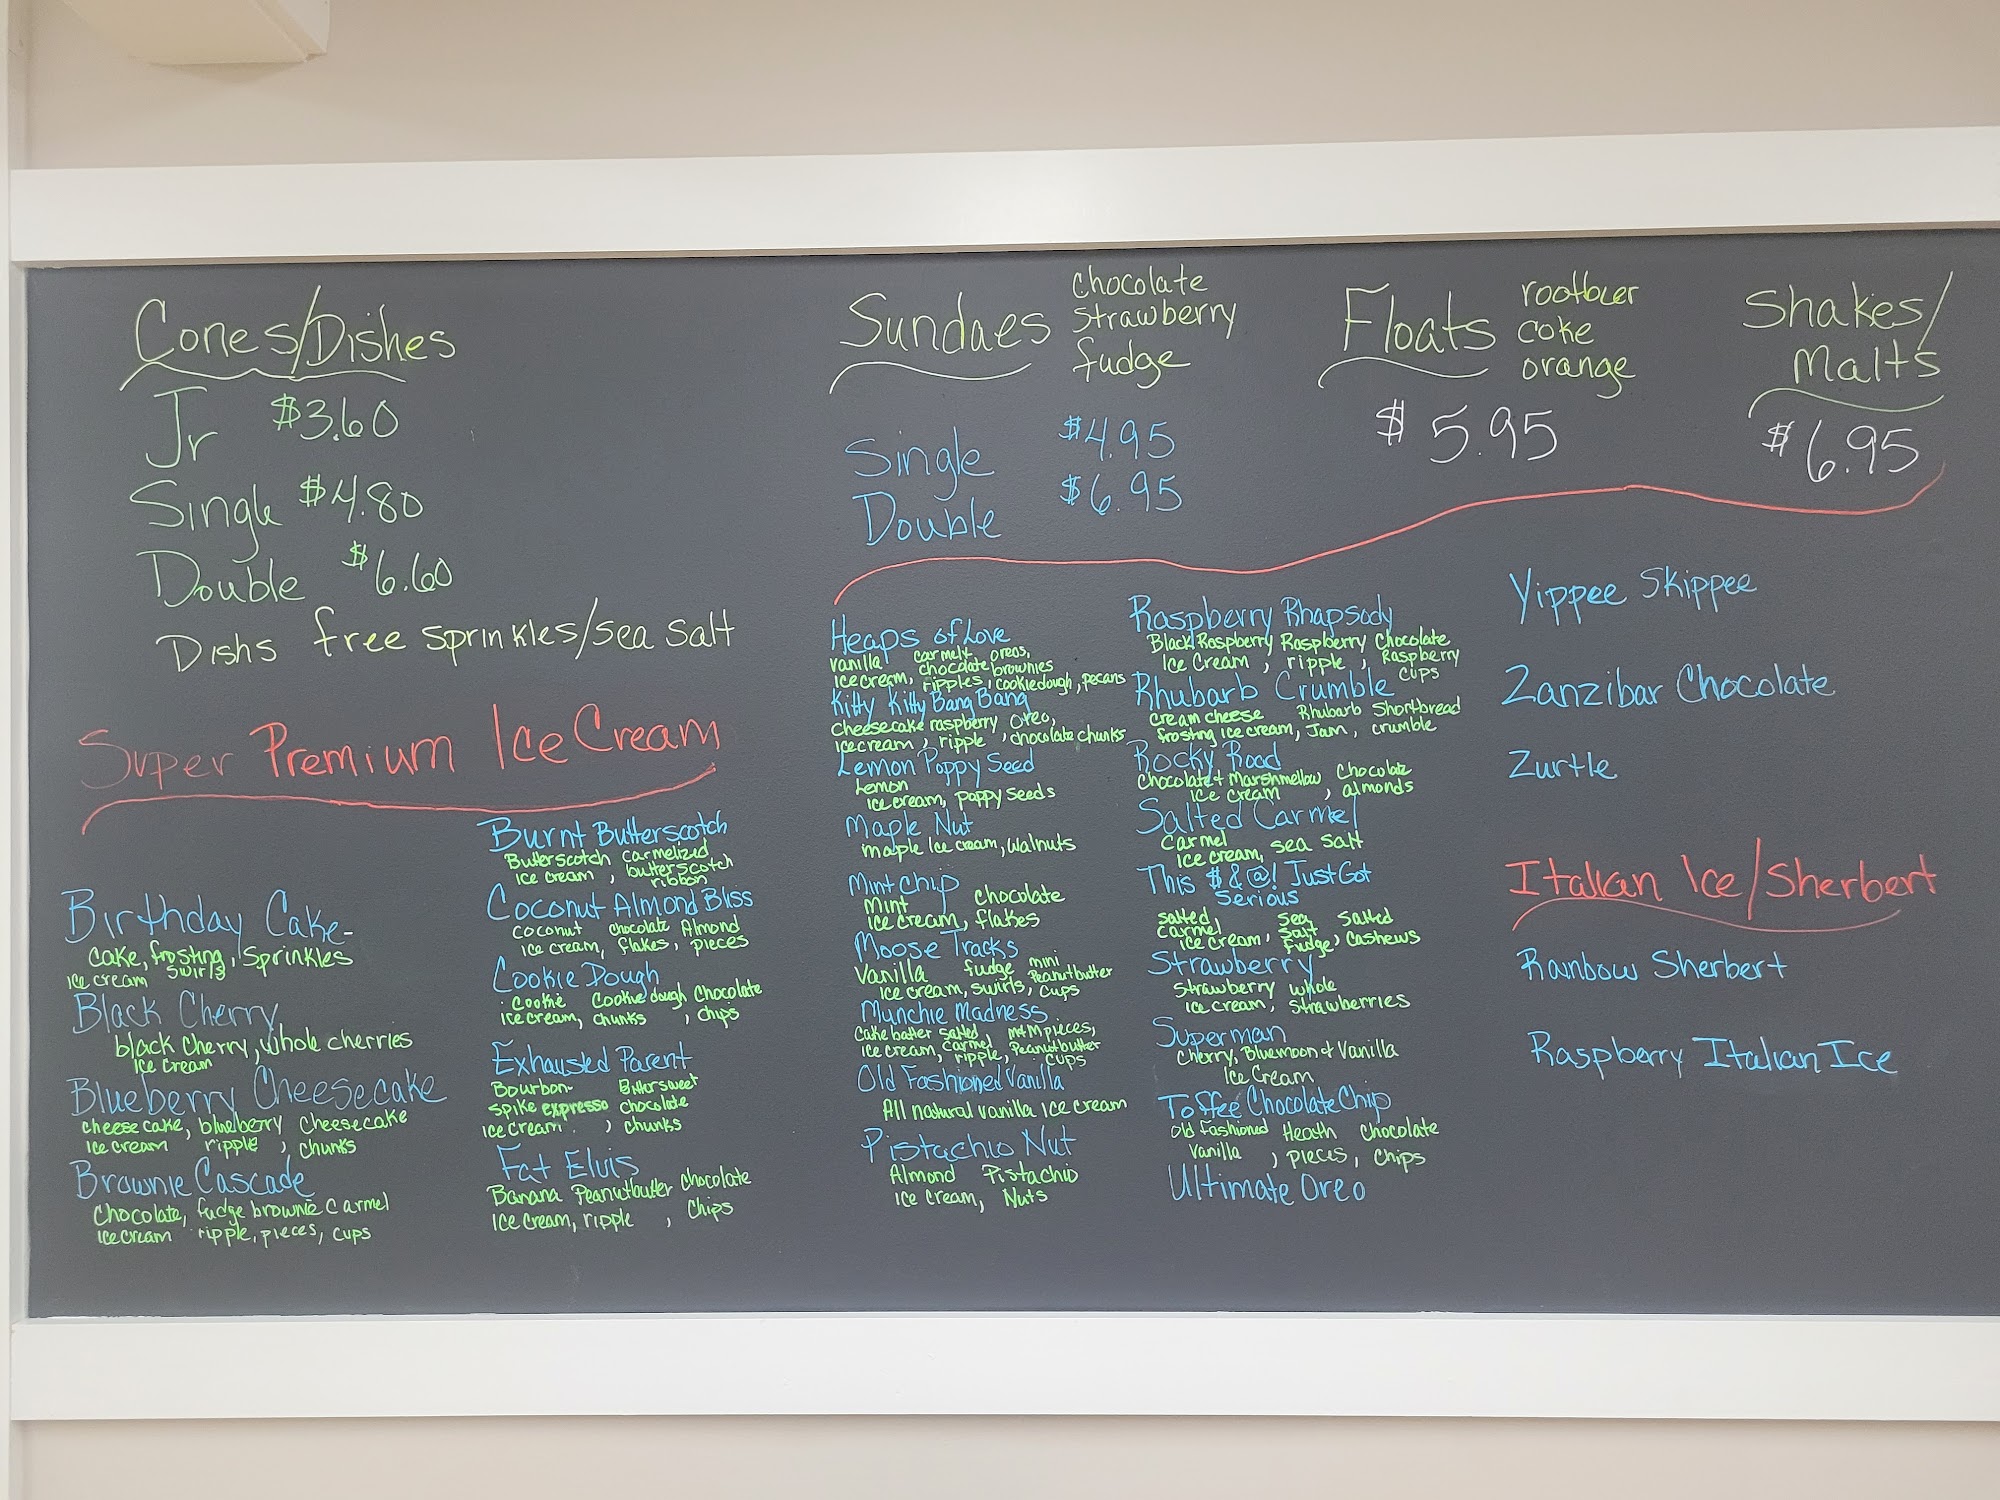 Cones/Dishes
Jr $3.60
Single $4.80
Double $6.60
Dishs free sprinkles/sea salt
Sundaes
chocolate
strawberry
fudge
Single $4.95
Double $6.95
Floats
rootbeer
coke
orange
$5.95
Shakes/
Malts
$6.95
Super Premium Ice Cream
Birthday Cake-
Cake, frosting, Sprinkles
Ice cream swirls
Black Cherry
black cherry, whole cherries
Ice Cream
Blueberry Cheesecake
cheese cake, blueberry cheesecake
Ice cream ripple, chunks
Brownie Cascade
Chocolate, fudge brownie Carmel
Ice cream ripple, pieces, cups
Burnt Butterscotch
Butterscotch carmelized
Ice cream, butterscotch
ribbon
Coconut Almond Bliss
coconut chocolate Almond
Ice cream, flakes, pieces
Cookie Dough
Cookie Cookie dough Chocolate
Ice cream, chunks, chips
Exhausted Parent
Bourbon- Bittersweet
spike expresso chocolate
Ice cream, chunks
Fat Elvis
Banana Peanutbutter chocolate
Ice cream, ripple, chips
Heaps of Love
vanilla carmelt oreos,
chocolate brownies
Ice cream, ripples, cookiedough, pecans
Kitty Kitty Bang Bang
cheesecake raspberry oreo,
Icecream, ripple, chocolate chunks
Lemon Poppy Seed
Lemon
Ice cream, poppy seeds
Maple Nut
maple Ice cream, walnuts
Mint Chip
Mint chocolate
Ice cream, flakes
Moose Tracks
Vanilla fudge mini
Peanutbutter
Ice cream, swirls, cups
Munchie Madness
Cake batter salted, M+M pieces,
Ice cream, carmel Peanutbutter
ripple, cups
Old Fashioned Vanilla
All natural vanilla Ice cream
Pistachio Nut
Almond Pistachio
Ice cream, Nuts
Raspberry Rhapsody
Black Raspberry Raspberry Chocolate
Ice Cream, ripple, Raspberry
cups
Rhubarb Crumble
Cream cheese Rhubarb Shortbread
frosting Ice cream, Jam, crumble
Rocky Road
Chocolate+ Marshmellow Chocolate
Ice cream, almonds
Salted Carmel
Carmel
Ice cream, sea salt
This $&@! Just Got
Serious
salted sea salted
carmel salt
Ice cream, fudge, cashews
Strawberry
Strawberry whole
Ice cream, strawberries
Superman
Cherry, Bluemoon & Vanilla
Ice Cream
Toffee Chocolate Chip
Old Fashioned Heath Chocolate
Vanilla, pieces, chips
Ultimate Oreo
Yippee Skippee
Zanzibar Chocolate
Zurtle
Italian Ice/Sherbert
Rainbow Sherbert
Raspberry Italian Ice